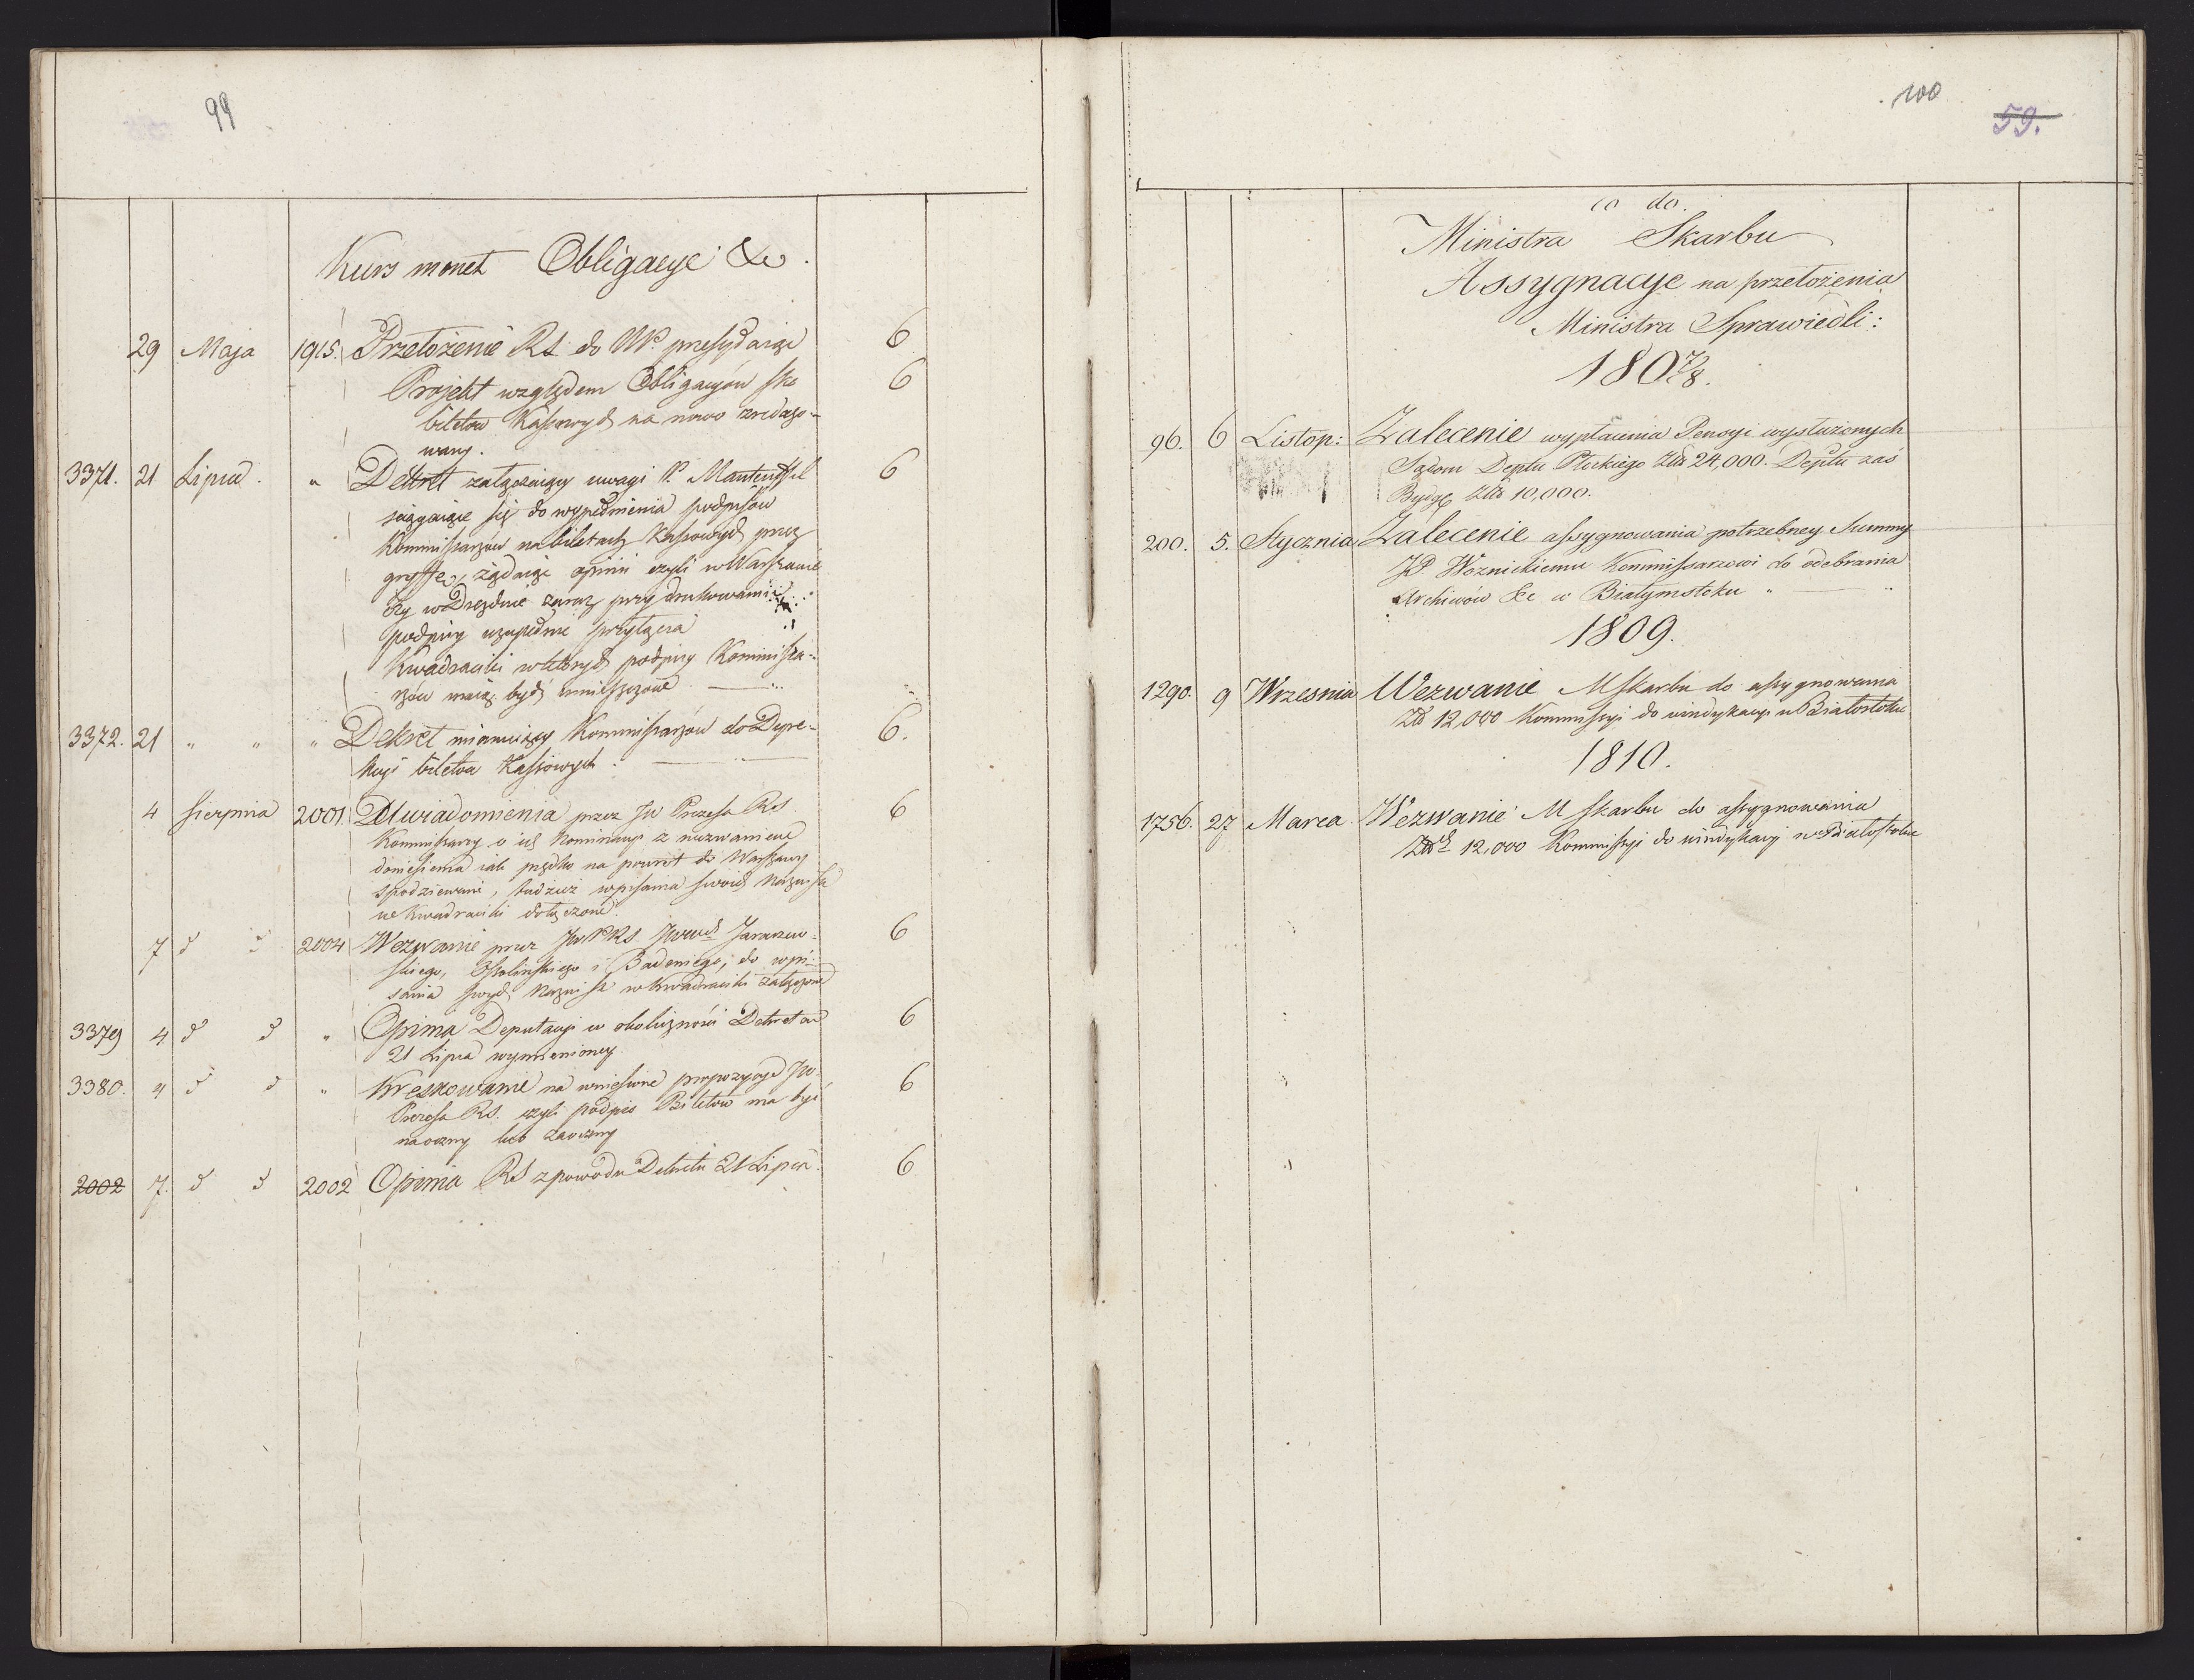 99
Kurs monet Obligacye &c.
29 Maja 1915. Przełożenie RS do NP. przesyłaiące 6
Projekt względem Obligacyów 6
biletów Kassowych na nowo zredago-
wany.
3371. 21 Lipca. " Dekret załączaiący uwagi P. Manteuffel 6
ściągaiące się do wypełnienia podpisów
Kommissarzów na biletach Kassowych przez
gryffę, żądaiąc opinii czyli w Warszawie
czy w Dreźnie zaraz przy drukowaniu
podpisy uzupełnić przyłącza
Kwadraciki w których podpisy Kommissa-
rzów maią bydź umieszczone
3372. 21 " " " Dekret mianuiący Kommissarzów do Dyre- 6.
kcyi biletów Kassowych
4 Sierpnia 2001. Uwiadomienia przez JW Prezesa RS. 6
Kommissarzy o ich Nominacyi z wezwaniem
doniesienia iak prędko na powrót do Warszawy
spodziewani, tudzież wpisania swoich Nazwisk
w Kwadraciki dołączone
7 d d 2004 Wezwanie przez JWPRS Jaraczew-
skiego, Ossolińskiego i Badeniego, do wpi- 6
sania swych Nazwisk w kwadraciki załączone
3379 4 d d " Opinia Deputacyi w okoliczności Dekretem 6
21 Lipca wymienioney
3380. 4 d d " Kreskowanie na wniesione propozycye JW 6
Prezesa RS. czyli podpis Biletów ma być
naoczny lub zaoczny
2002 7. d d 2002 Opinia RS z powodu Dekretu 21 Lipca. 6
100
59.
co do.
Ministra Skarbu
Assygnacye na przełożenia
Ministra Sprawiedli:
1807/8.
96. 6 Listop: Zalecenie wypłacenia Pensyi wysłużonych
Sądom Deptu Płockiego Złł 24,000. Deptu zaś
Bydg Złł 10,000.
200. 5. Stycznia Zalecenie assygnowania potrzebney Summy
JP Woznickiemu Kommissarzowi do odebrania
Archiwów &c w Białymstoku "
1809.
1290. 9 Wrzesnia Wezwanie MSkarbu do assygnowania
Złł 12,000 Kommissyi do windykacyi w Białostoku
1810.
1756. 27 Marca. Wezwanie M Skarbu do assygnowania
12,000 Kommissyi do windykacyi w Białostoku